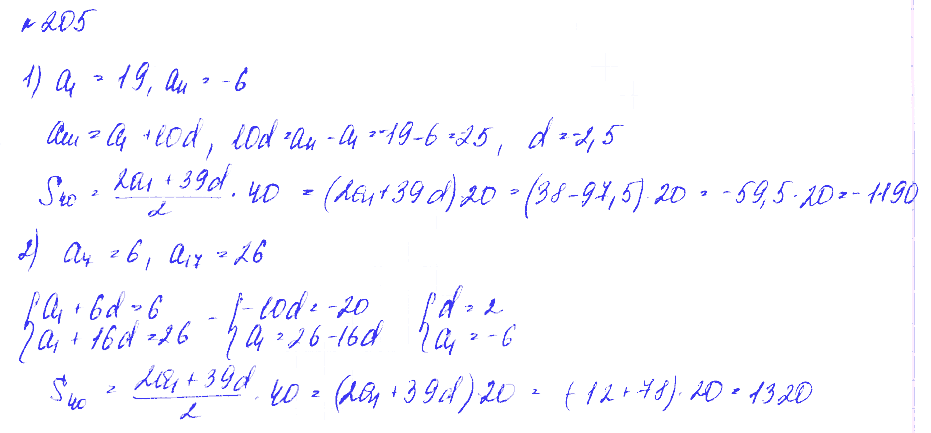 №205
1) a₁ = 19, a₁₁ = -6
a₁₁ = a₁ + 10d, 10d = a₁₁ - a₁ = -19-6 = -25, d = -2,5
S₄₀ = (2a₁ + 39d)/2 · 40 = (2a₁ + 39d) 20 = (38 - 97,5) · 20 = -59,5 · 20 = -1190
2) a₇ = 6, a₁₇ = 26
{a₁ + 6d = 6 - {-10d = -20 {d = 2
{a₁ + 16d = 26 {a₁ = 26 - 16d {a₁ = -6
S₄₀ = (2a₁ + 39d)/2 · 40 = (2a₁ + 39d) · 20 = (-12 + 78) · 20 = 1320